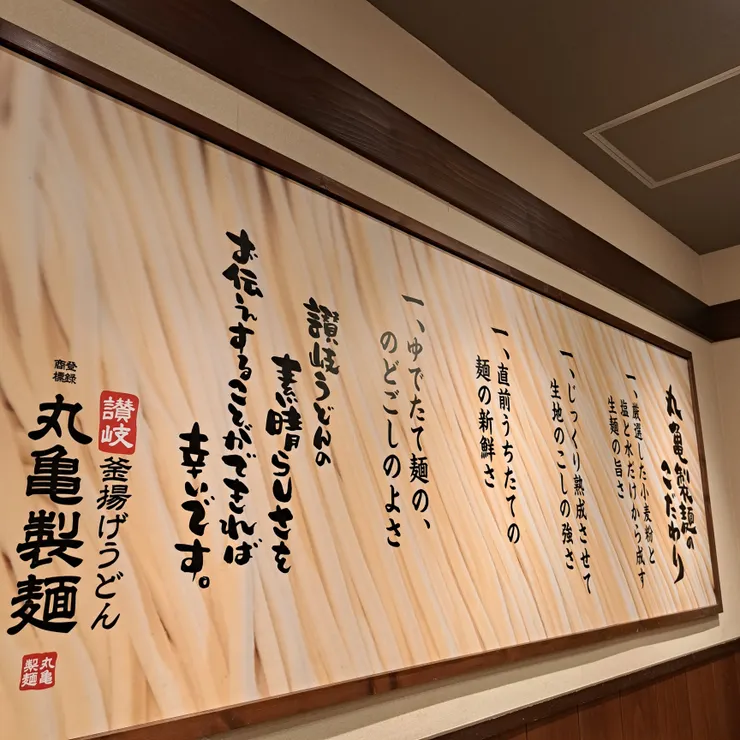 丸亀製麺の
こだわり
一、厳選した小麦粉と
塩と水だけから成す
生麺の旨さ
一、じっくり熟成させて
生地のこしの強さ
一、直前うちたての
麺の新鮮さ
一、ゆでたて麺の、
のどごしのよさ
讃岐うどんの
素晴らしさを
お伝えすることができれば
幸いです。
登録
商標
讃岐
釜揚げうどん
丸亀製麺
丸亀
製麺